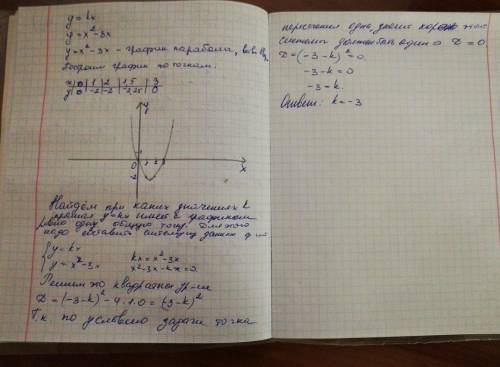 y = kx
y = x² - 3x
y = x² - 3x - график парабола,
Построим график по точкам.
x 0 1 2 1,5 3
y 0 -2 -2 -2,25 0
y
0
x
Найдём при каких значениях k
прямая y = kx имеет с графиком
ровно одну общую точку. Для этого
надо составить систему данных
y = kx
y = x² - 3x
kx = x² - 3x
x² - 3x - kx = 0
Решим квадратное ур-ие
D = (-3-k)² - 4·1·0 = (3-k)²
Т.к. по условию задачи точка
пересечения одна, значит
системы должен быть один D = 0.
D = (-3-k)² = 0
-3-k = 0
-3 = k.
Ответ: k = -3